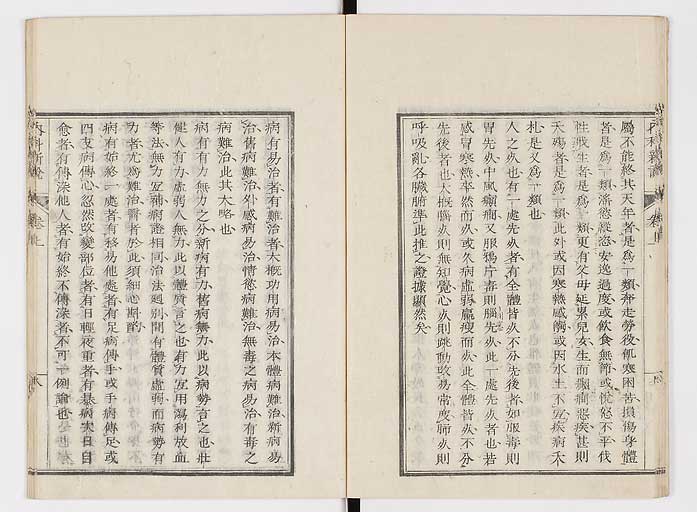 屬不能終其天年者是為一類奔走勞役飢寒困苦損傷身體
者是為一類滛慾縱恣安逸過度或飲食無節或忧怒不平伐
性戕生者是為一類更有父母延累兒女生而癲癎惡疾甚則
天殤者是為一類此外或因寒熱感觸或因水土不宜疾病夭
札是又為一類也
人之死也有一處先死者有全體皆死不分先後者如服毒則
胃先死中風癲癎又服鴉片毒則腦先死此一處先死者也若
感冒寒熱卒然而死或久病虛弱羸瘦而死此全體皆死不分
先後者也大概腦死則無知覺心死則跳動改易常度肺死則
呼吸亂各臟腑準此推之證據顯然矣
病有易治者有難治者大概功用病易治本體病難治新病易
治舊病難治外感病易治情慾病難治無毒之病易治有毒之
病難治此其大略也
病有有力無力之分新病有力舊病無力此以病勢言之也壯
健人有力虛弱人無力此以體質言之也有力宜用瀉利放血
等法無力宜補病證相同治法逈別間有體質虛弱而病勢有
力者尤為難治醫者於此須細心斟酌
病有始終一處者有移易他處者有足病傳手或手病傳足或
四支病傳心忽然改變部位者有日輕夜重者有暴病末日自
愈者有傳染他人者有始終不傳染者不可一例論也